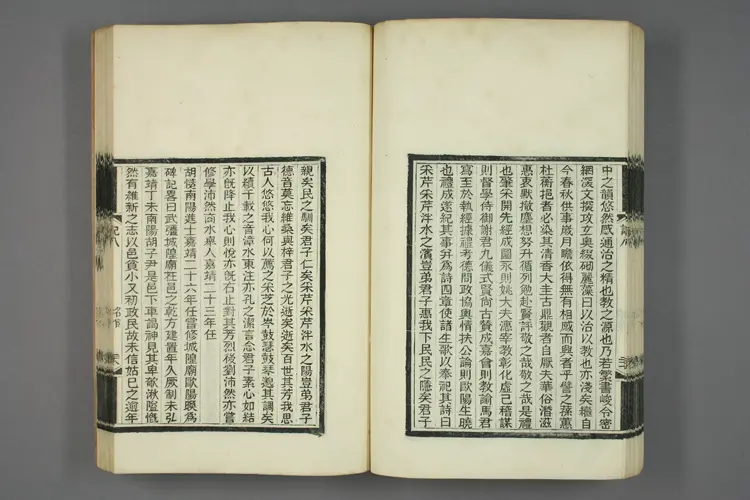 中之韻悠然感通治之精也教之源也乃若繁書峻令密
網深文撰攻立奧綴砌麗藻曰以治以教也亦淺矣繼自
今春秋供事歲月瞻依得無有相感而興者乎譬之蓀蕙
杜蘅挹者必染其清香大圭古鼎觀者自厭夫華俗潛滋
惠衷默撤塵想努升循列勉赴賢評敬之哉敬之哉是禮
也肇采開先經成圖永則姚大夫憲宰教彰化虛己稽謀
則督學侍御謝君九儀式賢尚古贊成嘉會則教諭馬君
寫至於執經據禮考德問政協輿情扶公論則歐陽生曉
也禮成遂紀其事并為詩四章使諸生歌以奉祀其詩曰
采芹采芹泮水之濱豈弟君子惠我下民民之隱矣君子
親矣民之馴矣君子仁矣采芹采芹泮水之陽豈弟君子
德音莫忘維桑與梓君子之光逝矣逝矣百世其芳我思
古人悠悠我心何以薦之采芝於岑鼓瑟鼓琴邈其調矣
以續千載之音漳水東注亦孔之潔言念君子素心如結
亦旣降止我心則悅亦旣右止對其芳烈後劉沛然亦嘗
修學沛然商水舉人嘉靖二十三年任
胡侯南陽進士嘉靖二十六年任嘗修城隍廟歐陽曉為
碑記畧曰武彊城隍廟在邑之乾方建置年久厥制未弘
嘉靖丁未南陽胡子尹是邑下車謁神見其卑敧湫隘慨
然有維新之志以邑貧小又初政民故未信姑已之逾年